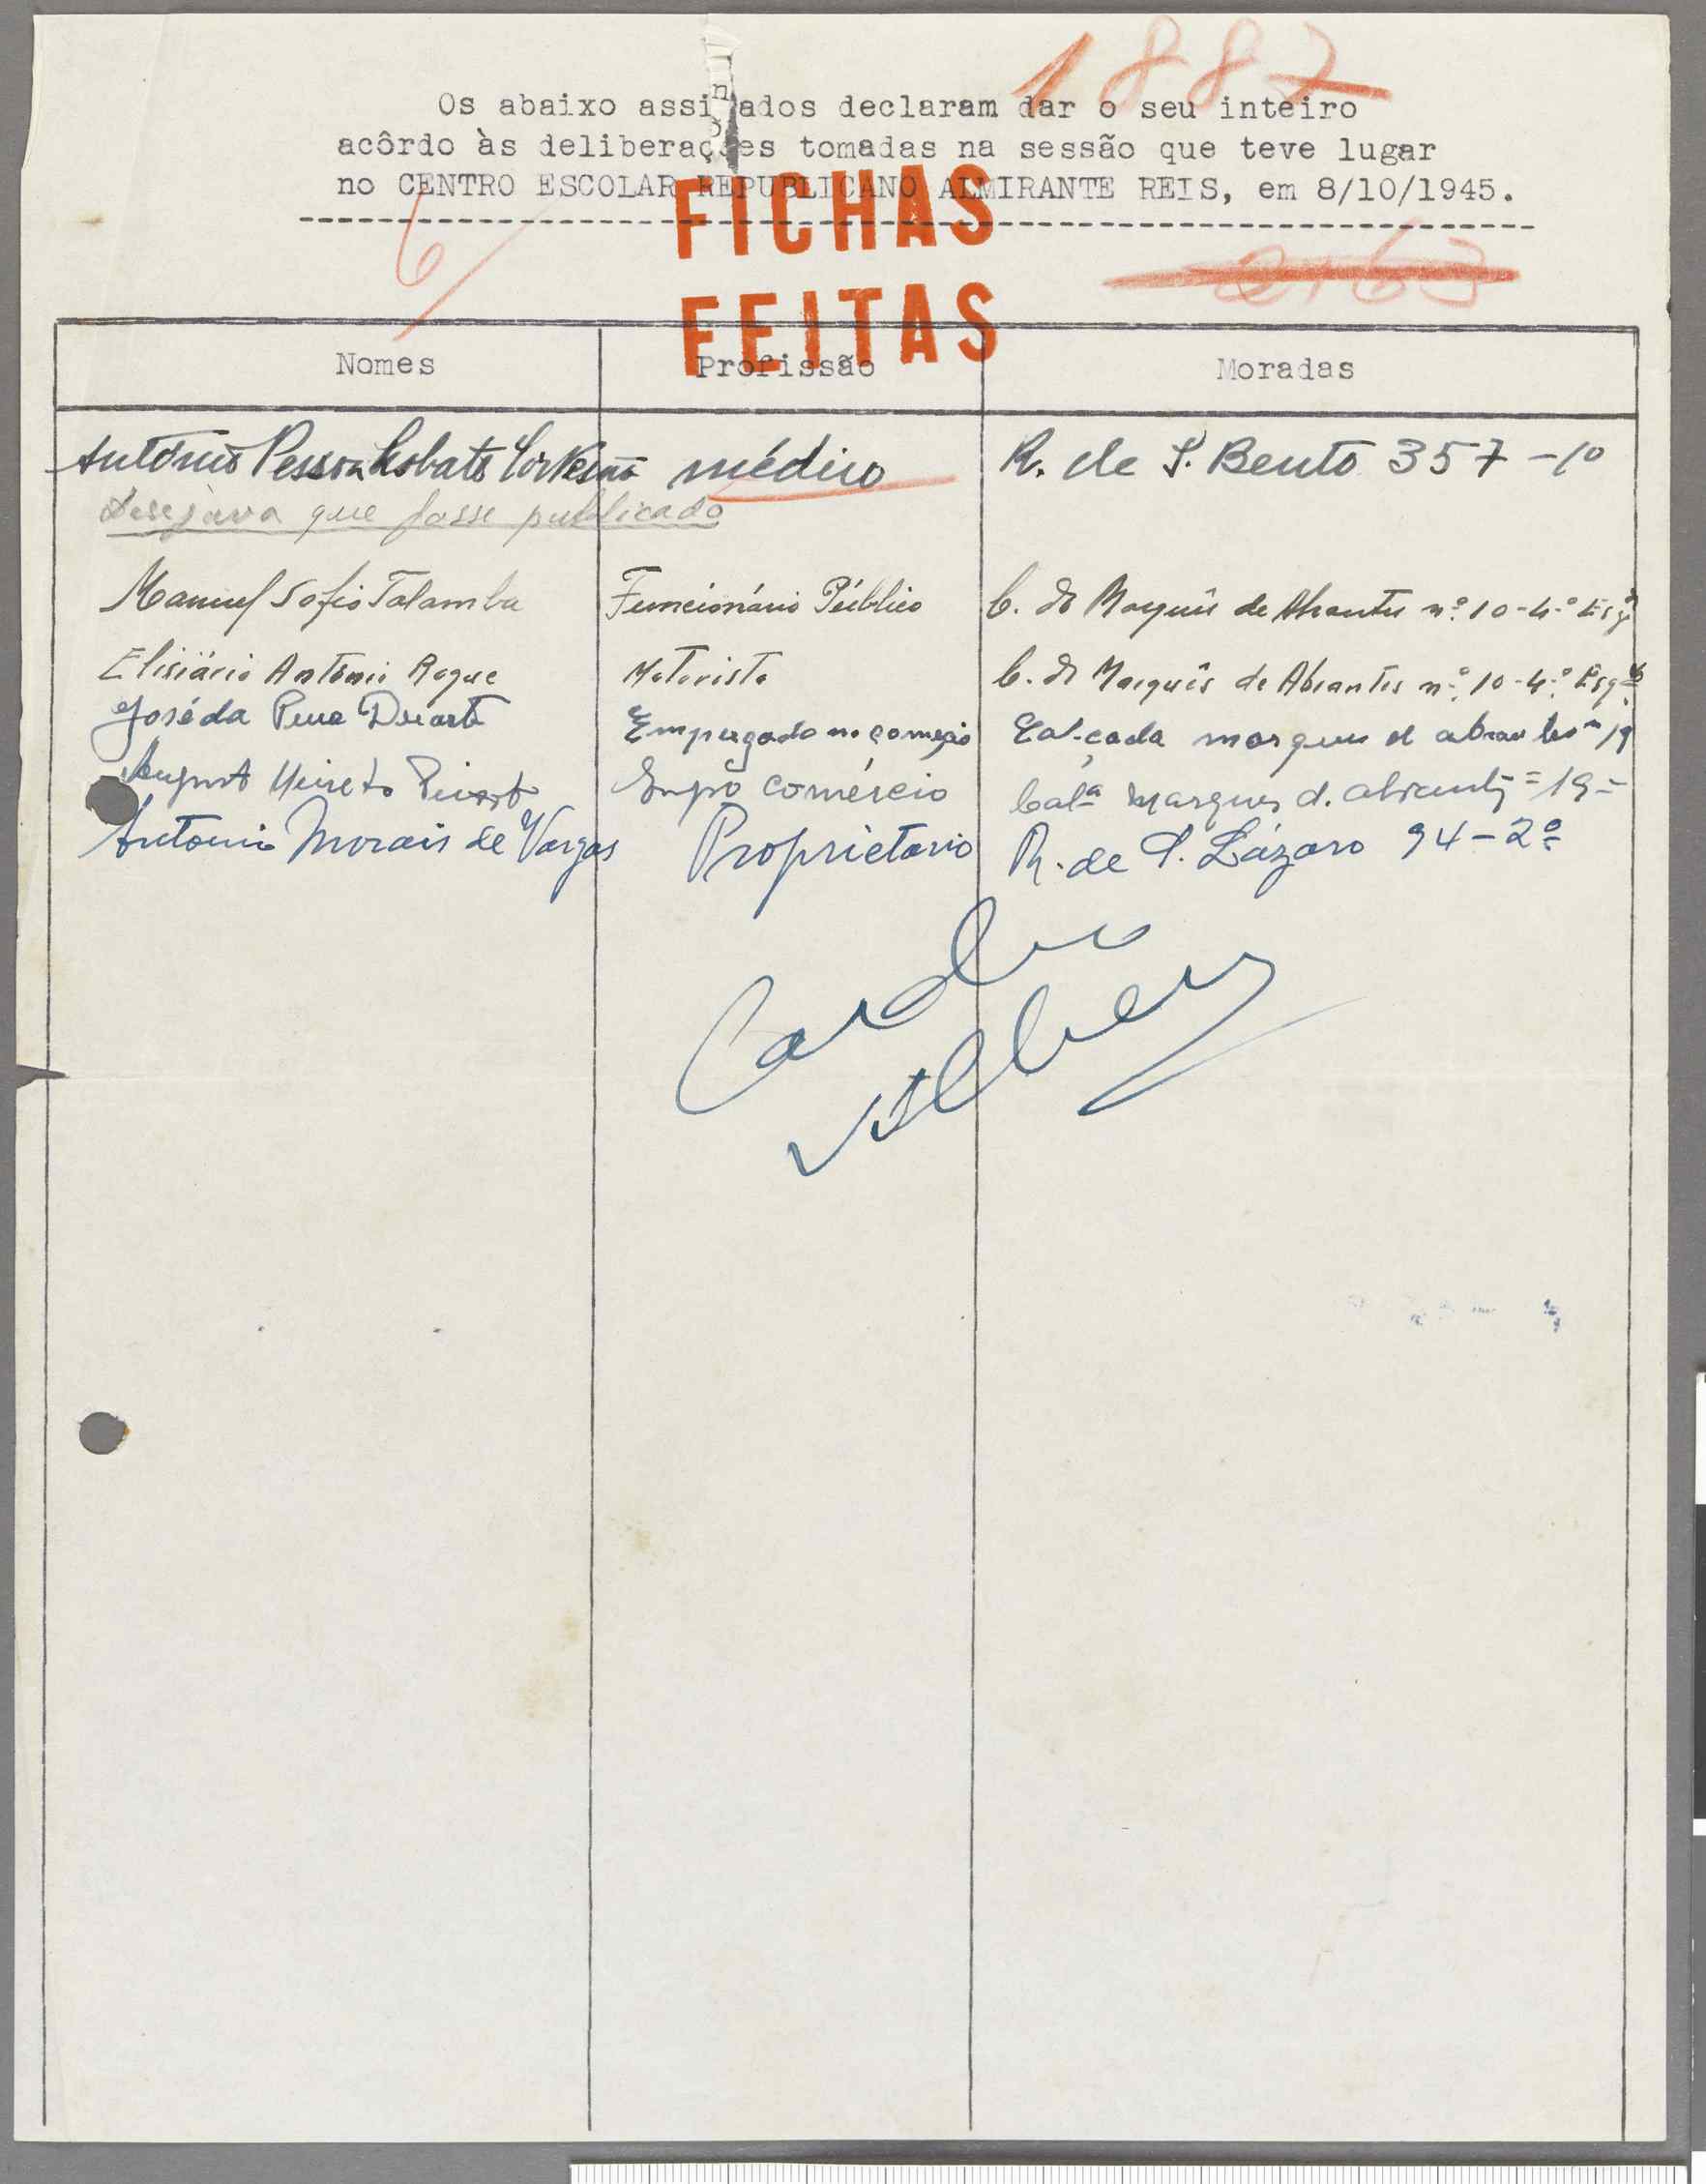 1887
Os abaixo assinados declaram dar o seu inteiro
acôrdo às deliberações tomadas na sessão que teve lugar
no CENTRO ESCOLAR REPUBLICANO ALMIRANTE REIS, em 8/10/1945.
6
FICHAS
FEITAS
Nomes Profissão Moradas
António Pessoa Lobato médico R. de S. Bento 357-1º
Desejava que fosse publicado
Manuel Sofio Talamba Funcionário Público C. do Marquês de Abrantes nº 10-4º Esqº
Elisiário António Roque Motorista C. do Marquês de Abrantes nº 10-4º Esqº
José da Duarte Empregado no comercio Calçada marques de abrantes 19
Empº comércio Calª Marques d. Abrantes = 19 =
Antonio Morais de Vargas Proprietario R. de S. Lázaro 94-2º